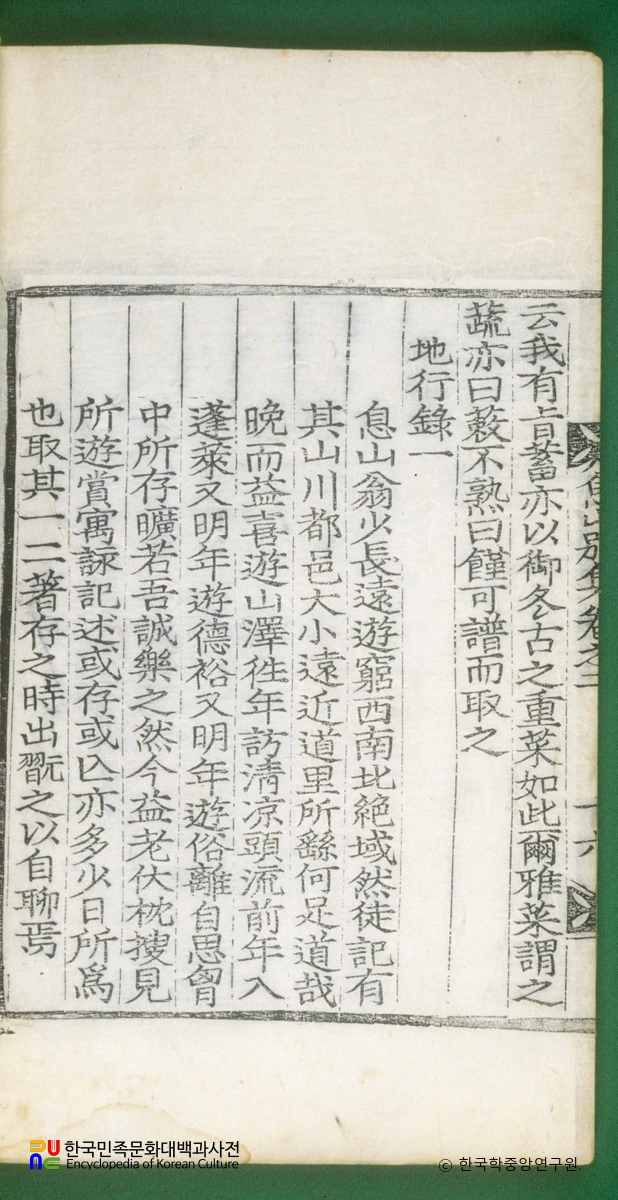 息山別集卷之二
十六
云我有旨蓄亦以御冬古之重菜如此爾雅菜謂之
蔬亦曰蔌不熟曰饉可譜而取之
地行錄一
息山翁少長遠遊窮西南北絶域然徒記有
其山川都邑大小遠近道里所繇何足道哉
晩而益喜遊山澤徃年訪淸凉頭流前年入
蓬萊又明年遊德裕又明年遊俗離自思胷
中所存曠若吾誠樂之然今益老伏枕搜見
所遊賞寓詠記述或存或亾亦多少日所爲
也取其一二著存之時出翫之以自聊焉
한국민족문화대백과사전
Encyclopedia of Korean Culture
© 한국학중앙연구원